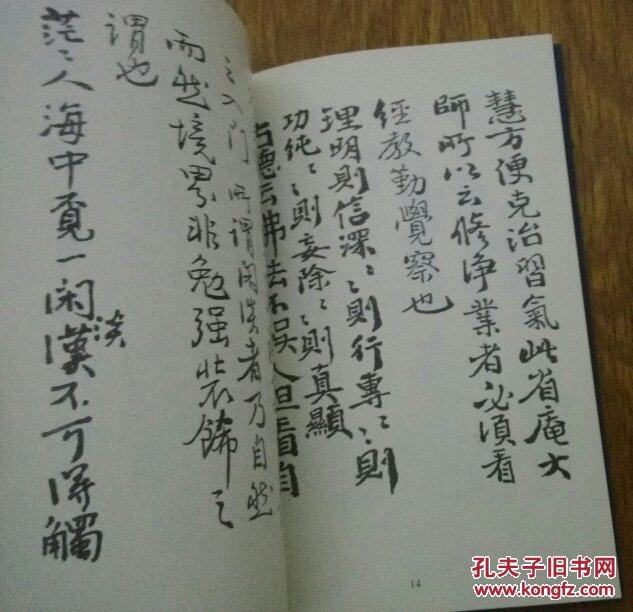 慧方便克治習氣此省庵大
師所以云修净業者必須看
經教勤覺察也
理明則信深〻則行專〻則
功純〻則妄除〻則真顯
古德云佛法不误人但看自
14
之入门 所谓闲淡者乃自然
而然境界非勉强装饰之
謂也
茫〻人海中覓一闲淡漢不可得觸
孔夫子旧书网
www.kongfz.com